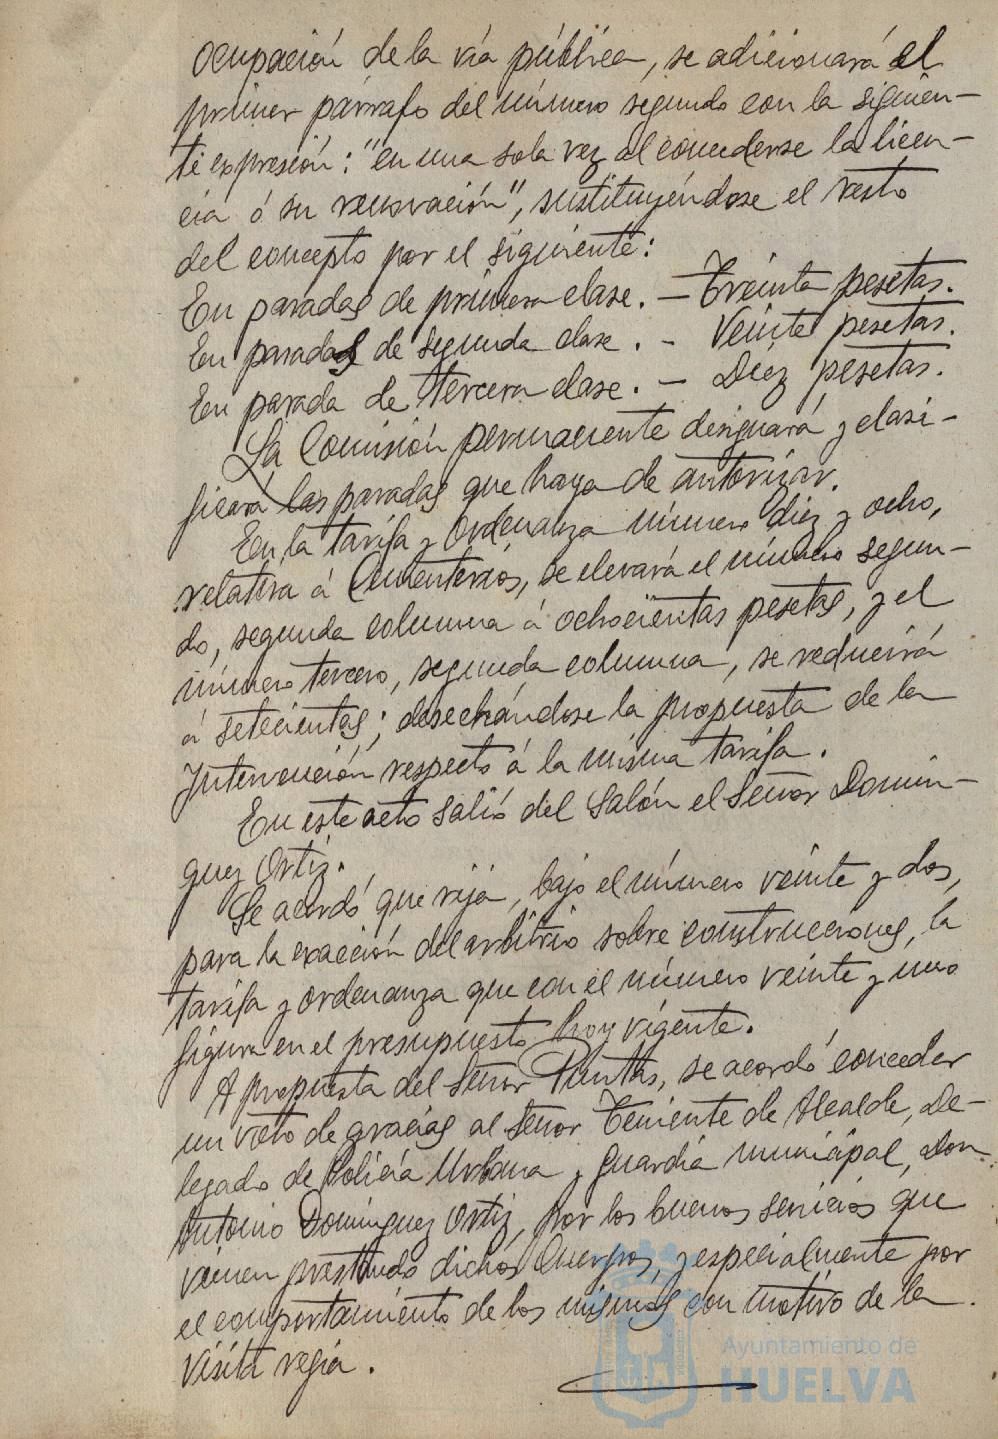 ocupación de la vía pública, se adicionará al
primer párrafo del número segundo con la siguien-
te expresión: "en una sola vez al concederse la licen-
cia ó su renovación", sustituyéndose el resto
del concepto por el siguiente:
En paradas de primera clase. — Treinta pesetas.
En paradas de segunda clase. — Veinte pesetas.
En parada de tercera clase. — Diez pesetas.
La Comisión permanente designará y clasi-
ficará las paradas que haya de autorizar.
En la tarifa y Ordenanza número diez y ocho,
relativa á Cementerios, se elevará el número segun-
do, segunda columna á ochocientas pesetas, y el
número tercero, segunda columna, se reducirá
á setecientas; desechándose la propuesta de la
Intervención respecto á la misma tarifa.
En este acto salió del Salón el Señor Domín-
guez Ortiz.
Se acordó que rija, bajo el número veinte y dos,
para la exacción del arbitrio sobre construcciones, la
tarifa y ordenanza que con el número veinte y uno
figura en el presupuesto hoy vigente.
A propuesta del Señor Puntas, se acordó conceder
un voto de gracias al Señor Teniente de Alcalde, De-
legado de Policía Urbana y guardia municipal, Don
Antonio Domínguez Ortiz, por los buenos servicios que
vienen prestando dichos Cuerpos, y especialmente por
el comportamiento de los mismos con motivo de la
visita regia.
Ayuntamiento de
HUELVA